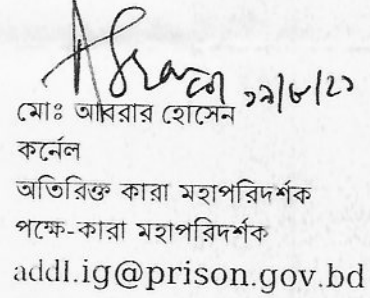 ১৯/৮/২১
মোঃ আবরার হোসেন
কর্নেল
অতিরিক্ত কারা মহাপরিদর্শক
পক্ষে-কারা মহাপরিদর্শক
addl.ig@prison.gov.bd